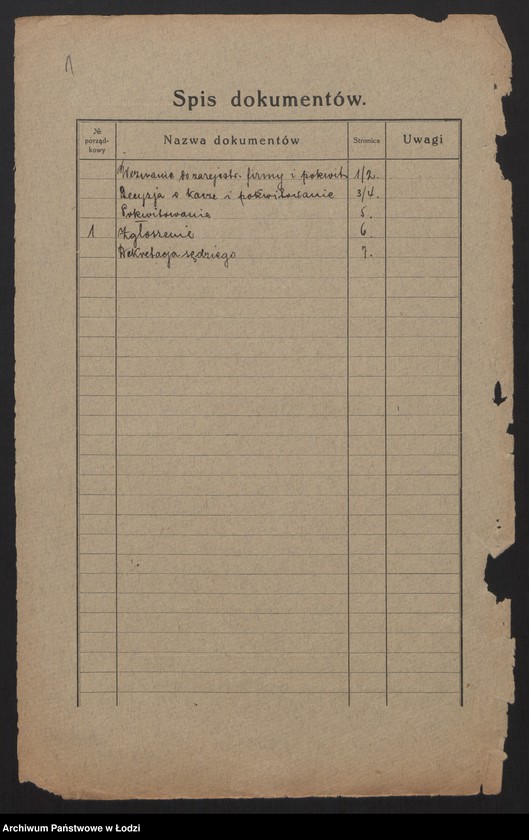 1
Spis dokumentów.
№ porząd-kowy Nazwa dokumentów Stronica Uwagi
Wezwanie do zarejestr. firmy i pokwit. 1/2.
Decyzja o karze i pokwitowanie 3/4.
Pokwitowanie 5.
1 Zgłoszenie 6
Dekretacja sędziego 7.
Archiwum Państwowe w Łodzi